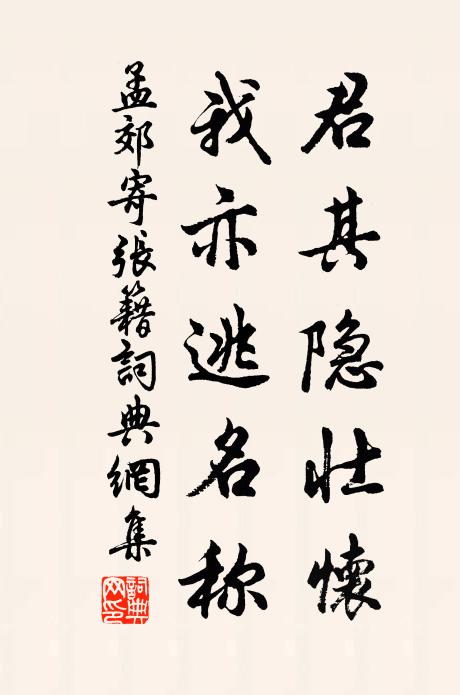 君其隐壮懷
我亦逃名称
孟郊寄張籍詞典網集
詞典网印